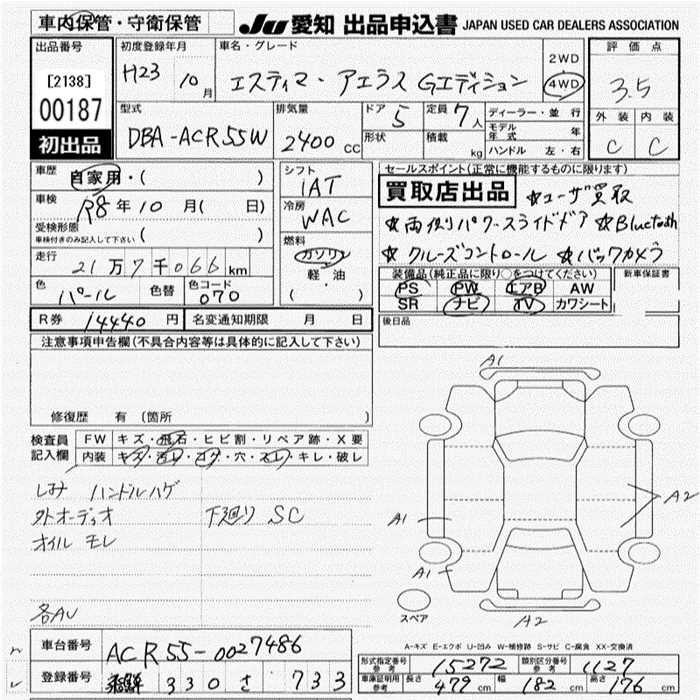 車内保管・守衛保管
JU 愛知 出品申込書 JAPAN USED CAR DEALERS ASSOCIATION
出品番号
[2138]
00187
初出品
初度登録年月
H23 10月
車名・グレード
エスティマ・アエラス Gエディション
2WD
4WD
評価点
3.5
外装 内装
C C
型式
DBA-ACR55W
排気量
2400 cc
ドア 5
形状
定員 7人
積載 kg
ディーラー・並行
モデル年式 年
ハンドル 左・右
車歴 自家用・( )
車検 R8年10月( 日)
受検形態
車検付きのみ記入して下さい ( )
走行 21万7千066km
色 パール 色替 色コード 070
シフト
IAT
冷房
WAC
燃料
ガソリン
軽・油
・( )
セールスポイント(正常に機能するものに限り)
買取店出品 ☆ユーザ買取
☆両側パワースライドドア ☆Bluetooth
☆クルーズコントロール ☆バックカメラ
装備品(純正品に限り○をつけてください)
PS PW エアB AW
SR ナビ TV カワシート
新車保証書
後日品
R券 14440円 名変通知期限 月 日
注意事項申告欄(不具合内容等は具体的に記入して下さい)
修復歴 有(箇所 )
検査員記入欄
FW キズ・飛石・ヒビ割・リペア跡・X要
内装 キズ・汚レ・コゲ・穴・スレ・キレ・破レ
しみ ハンドルハゲ
外オーディオ 下廻り SC
オイル モレ
各AU
A1
A1
A2
A1
A2
スペア
A-キズ E-エクボ U-凹み W-補修跡 S-サビ C-腐食 XX-交換済
車台番号 ACR55-0027486
登録番号 330 さ 733
形式指定番号 参考 15272 類別区分番号 参考 1127
車庫証明用 参考 長さ 479cm 幅 182cm 高さ 176cm